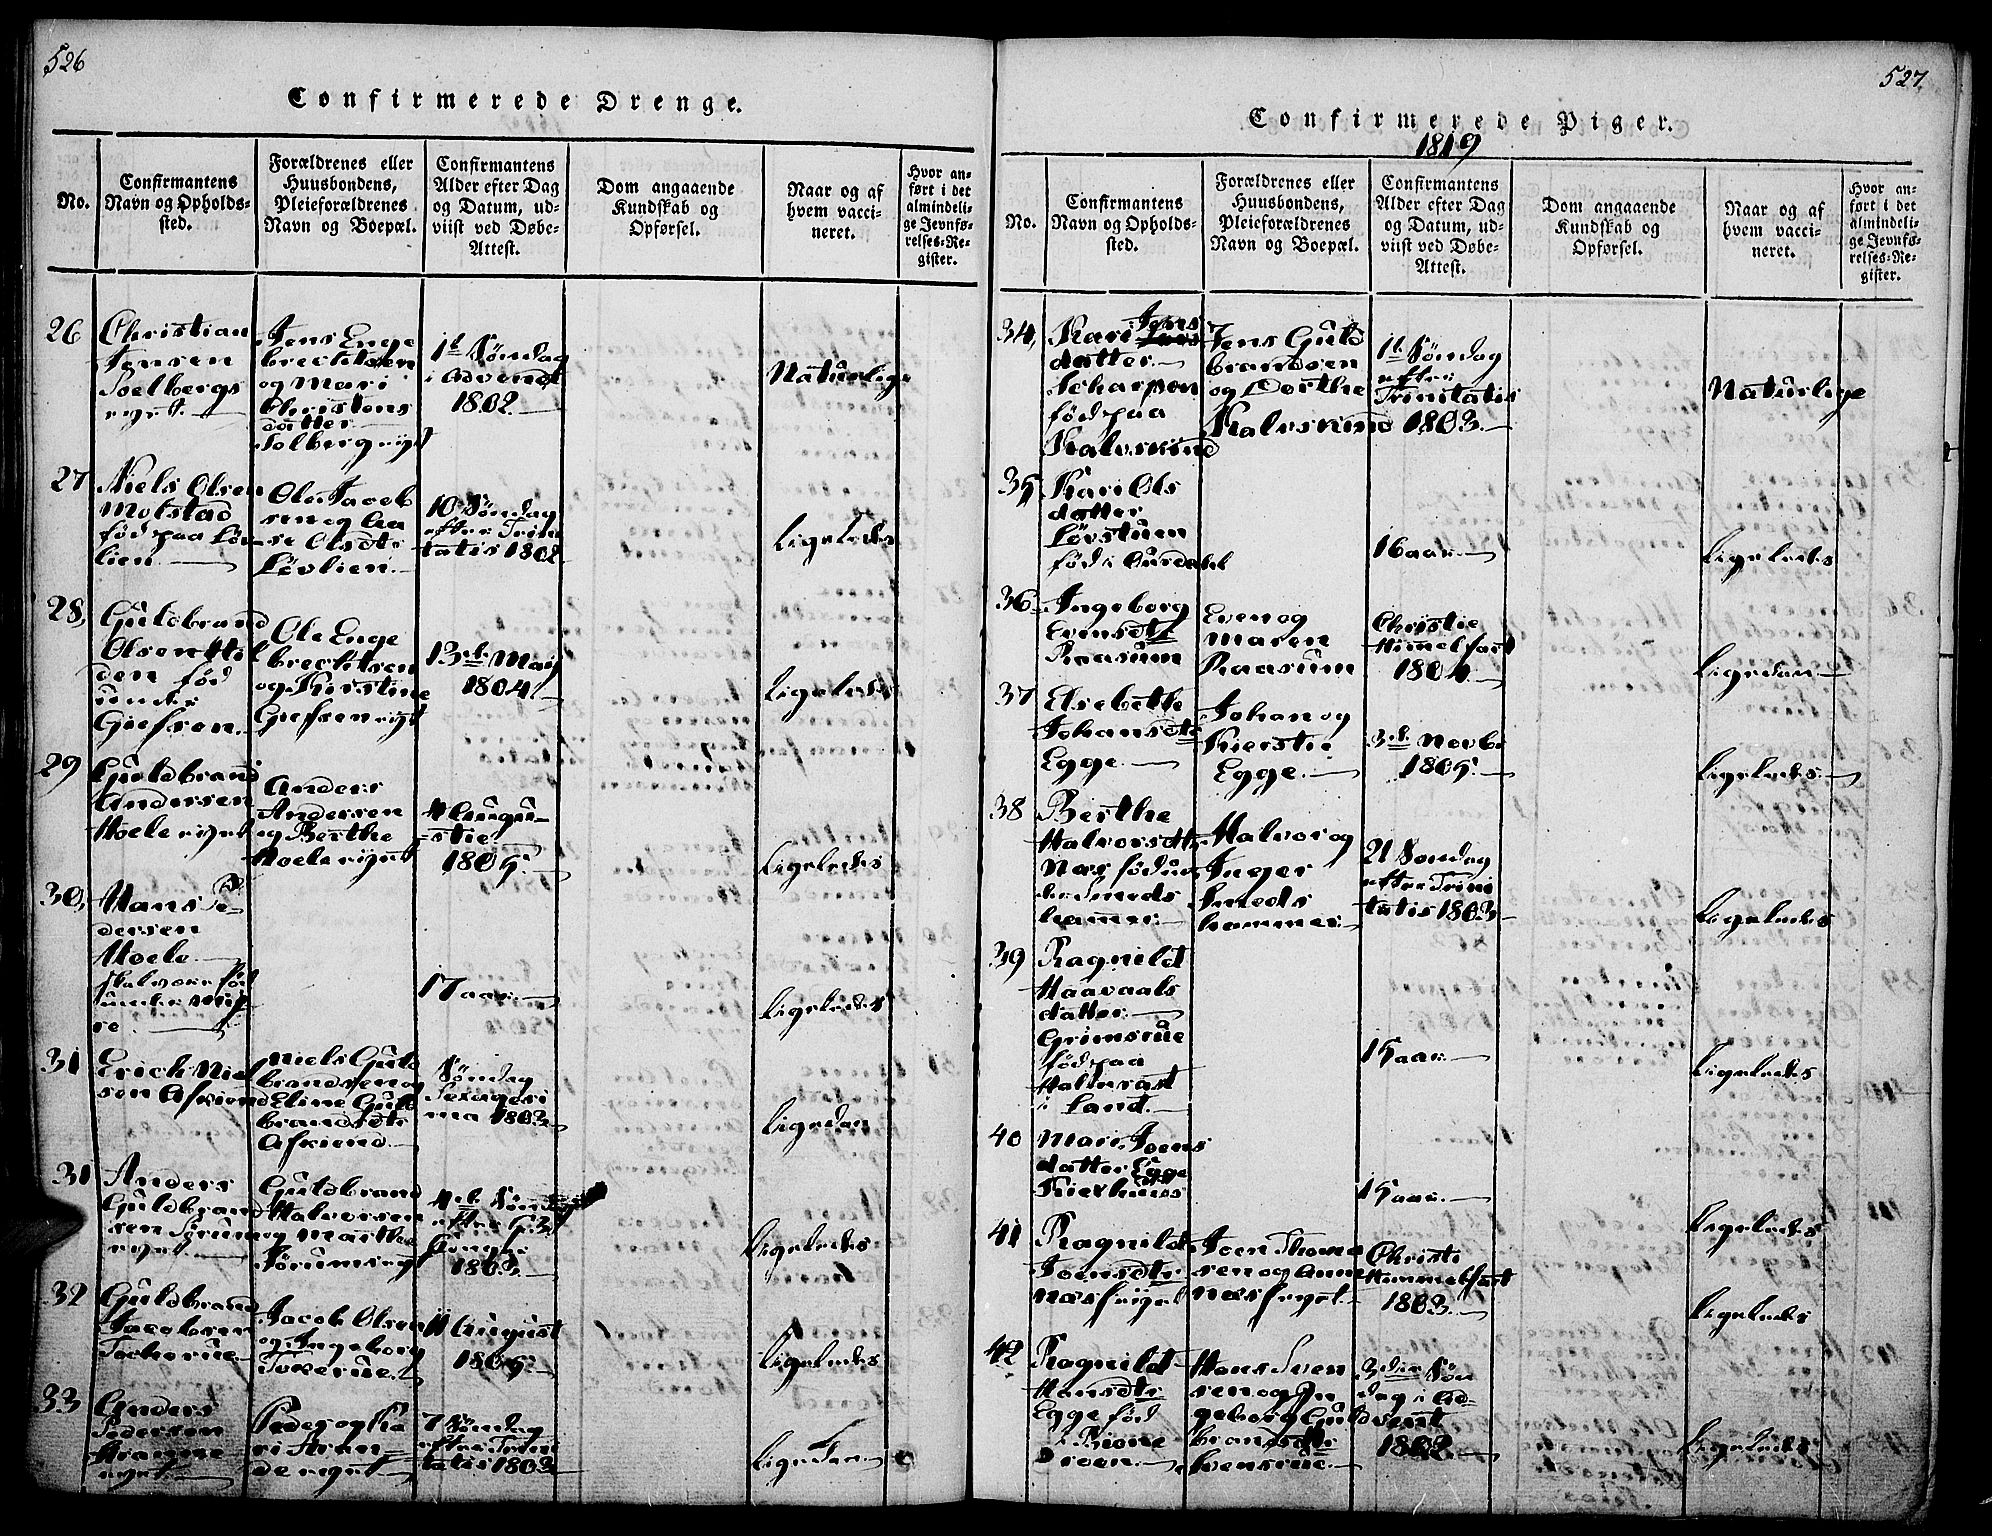 526
Confirmerede Drenge.
No.
Confirmantens
Navn og Opholds-
sted.
Forældrenes eller
Huusbondens,
Pleieforældrenes
Navn og Boepæl.
Confirmantens
Alder efter Dag
og Datum, ud-
viist ved Døbe-
Attest.
Dom angaaende
Kundskab og
Opførsel.
Naar og af
hvem vacci-
neret.
Hvor an-
ført i det
almindeli-
ge Jevnfø-
relses-Re-
gister.
26
Christian
Jensen
Soelbergs
eyet.
Jens Enge
brechtsen
og Mari
Christens
datter
Solbergeyet
1ste Søndag
i Advendt
1802.
Naturlige
27
Niels Olsen
Molstad
fød paa Løv
lien
Ole Jacob
sen og Aa
se Olsdtr
Løvlien
10 Søndag
efter Trini
tatis 1802
Ligeledes
28,
Guldbrand
Olsen
den fød
under
Giefsen.
Ole Enge
brechtsen
og Kirstine
Giefseneyet
13de Maij
1804.
Ligeledes
29
Guldbrand
Andersen
Hoele eyet
Anders
Andersen
og Berthe
Hoele eyet
4 Augu-
stie
1805.
Ligeledes
30,
Hans Pe-
dersen
Hoele
fød
under
re
17 aar
Ligeledes
31
Erich Niel
sen Afkiend
Niels Guld
brandsen og
Eline Guld
brandsdtr
Afkiend
Søndag
Sexagesi
ma 1803
Ligedan
31
Anders
Guldbrand
sen Sørum
eyet
Guldbrand
Halvorsen
og Marthe
Sørumseyet
4de Søndag
efter H. 3
Konger
1803.
Ligeledes
32
Guldbrand
Jacobsen
Tockerue
Jacob Olsen
og Ingeborg
Tokerue.
11 August
1805.
Ligeledes
33
Anders
Pedersen
eyet
Peder og Ka
ri Aran
de eyet
7 Søndag
efter Trini
tatis 1803
Ligedan
527.
Confirmerede Piger.
1819
No.
Confirmantens
Navn og Opholds-
sted.
Forældrenes eller
Huusbondens,
Pleieforældrenes
Navn og Boepæl.
Confirmantens
Alder efter Dag
og Datum, ud-
viist ved Døbe-
Attest.
Dom angaaende
Kundskab og
Opførsel.
Naar og af
hvem vacci-
neret.
Hvor an-
ført i det
almindeli-
ge Jevnfø-
relses-Re-
gister.
34,
Kari Jens
datter
Scharpen
fød paa
Kalvskind
Jens Guld
brandsen
og Dorthe
Kalvskind
1te Søndag
efter
Trinitatis
1803.
Naturlige
35
Kari Ols
datter
Løvstuen
fød i Aurdahl
16 aar
Ligeledes
36
Ingeborg
Evensdtr
Raasum
Even og
Maren
Raasum
Christie
Himelfart
1804
Ligedan
37
Elsebethe
Johansdtr
Egge
Johan og
Kierstie
Egge
3de Novbr
1805.
Ligeledes
38
Berthe
Halvorsdtr
Næs fød un
der Smeds
hammer
Halvor og
Inger
Smeds
hammer
21 Søndag
efter Trini
tatis 1803
Ligeledes
39
Ragnildt
Haavaals
datter
Grimsrue
fød paa
i Land.
15 aar
Ligeledes
40
Mari Joens
datter Egge
15 aar
Ligeledes
41
Ragnildt
Joensdtr
Næsseyet
Joen Thoma
sen og Anne
Næsseyet
Christi
Himmelfart
1803.
Ligeledes
42
Ragnildt
Hansdtr
Egge fød
i Bione
roen
Hans Sven
sen og In
geborg Guld
brandsdtr
Svensrue
3die Søn
dag i Ad
vent
1802
Ligeledes